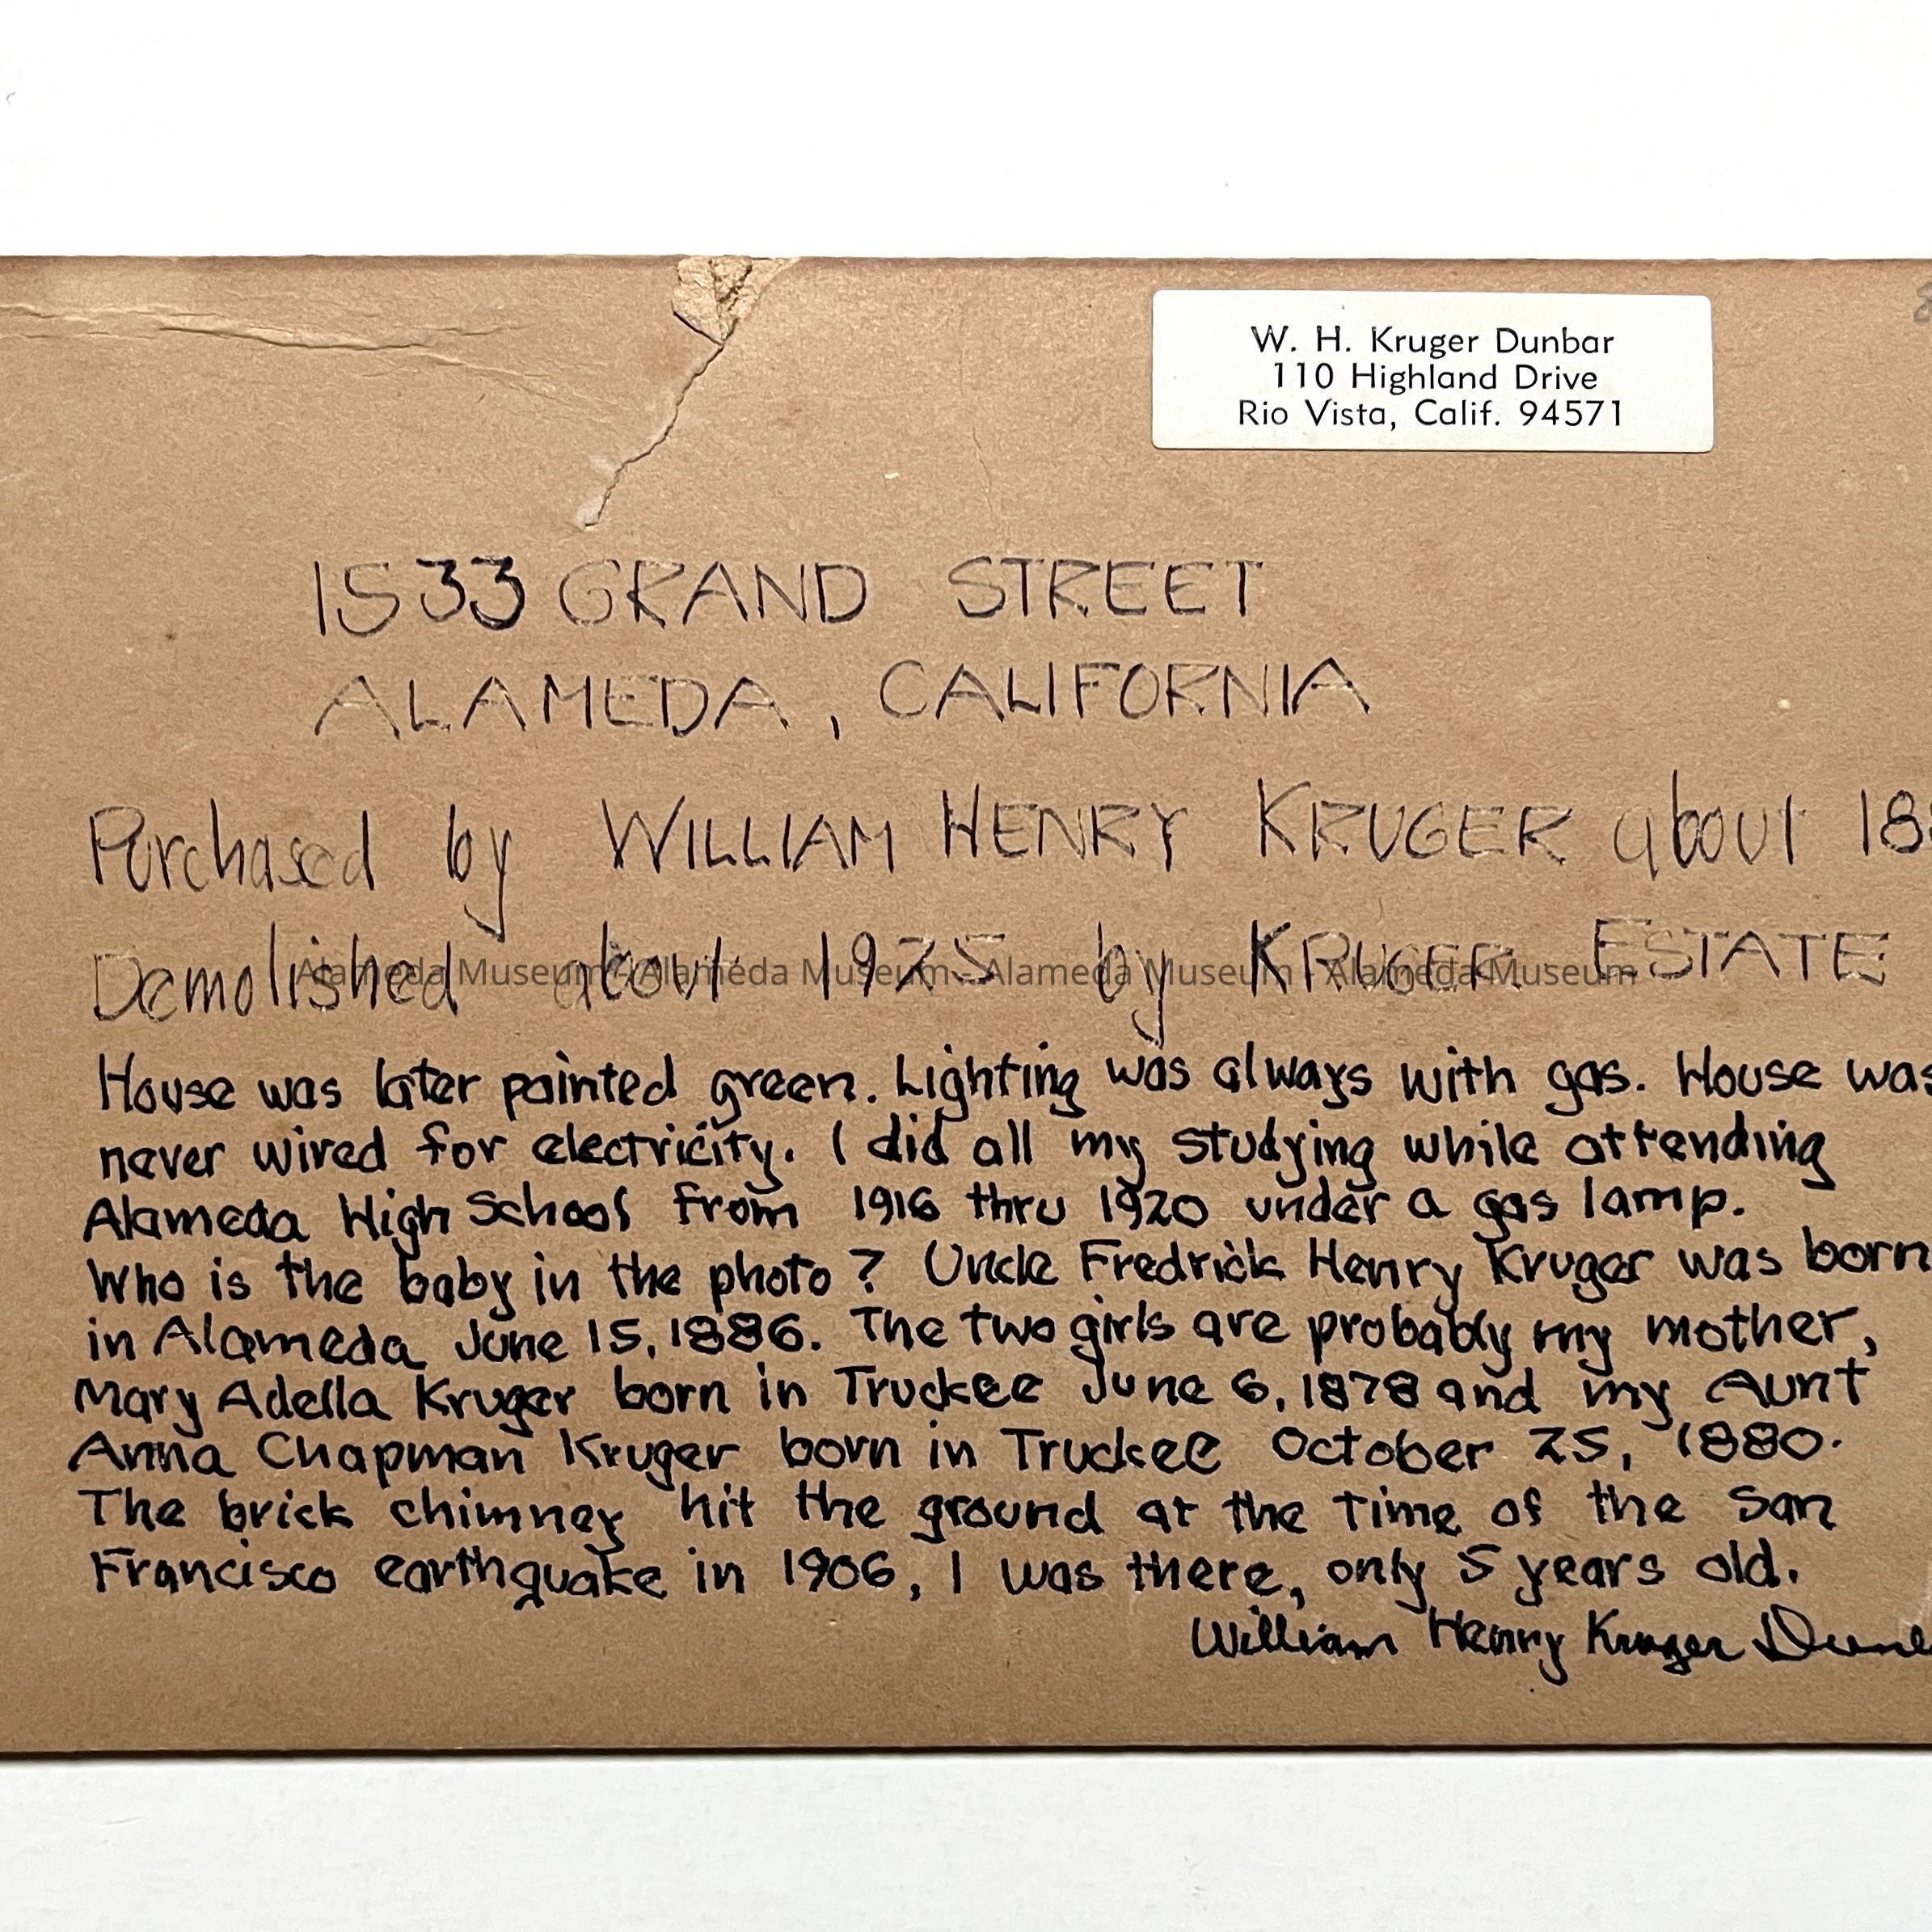 W. H. Kruger Dunbar
110 Highland Drive
Rio Vista, Calif. 94571
1533 GRAND STREET
ALAMEDA, CALIFORNIA
Purchased by WILLIAM HENRY KRUGER about 18
Demolished about 1925 by KRUGER ESTATE
Alameda Museum - Alameda Museum - Alameda Museum - Alameda Museum
House was later painted green. Lighting was always with gas. House was
never wired for electricity. I did all my studying while attending
Alameda High School from 1916 thru 1920 under a gas lamp.
Who is the baby in the photo? Uncle Fredrick Henry Kruger was born
in Alameda June 15, 1886. The two girls are probably my mother,
Mary Adella Kruger born in Truckee June 6, 1878 and my Aunt
Anna Chapman Kruger born in Truckee October 25, 1880.
The brick chimney hit the ground at the time of the San
Francisco earthquake in 1906, I was there, only 5 years old.
William Henry Kruger